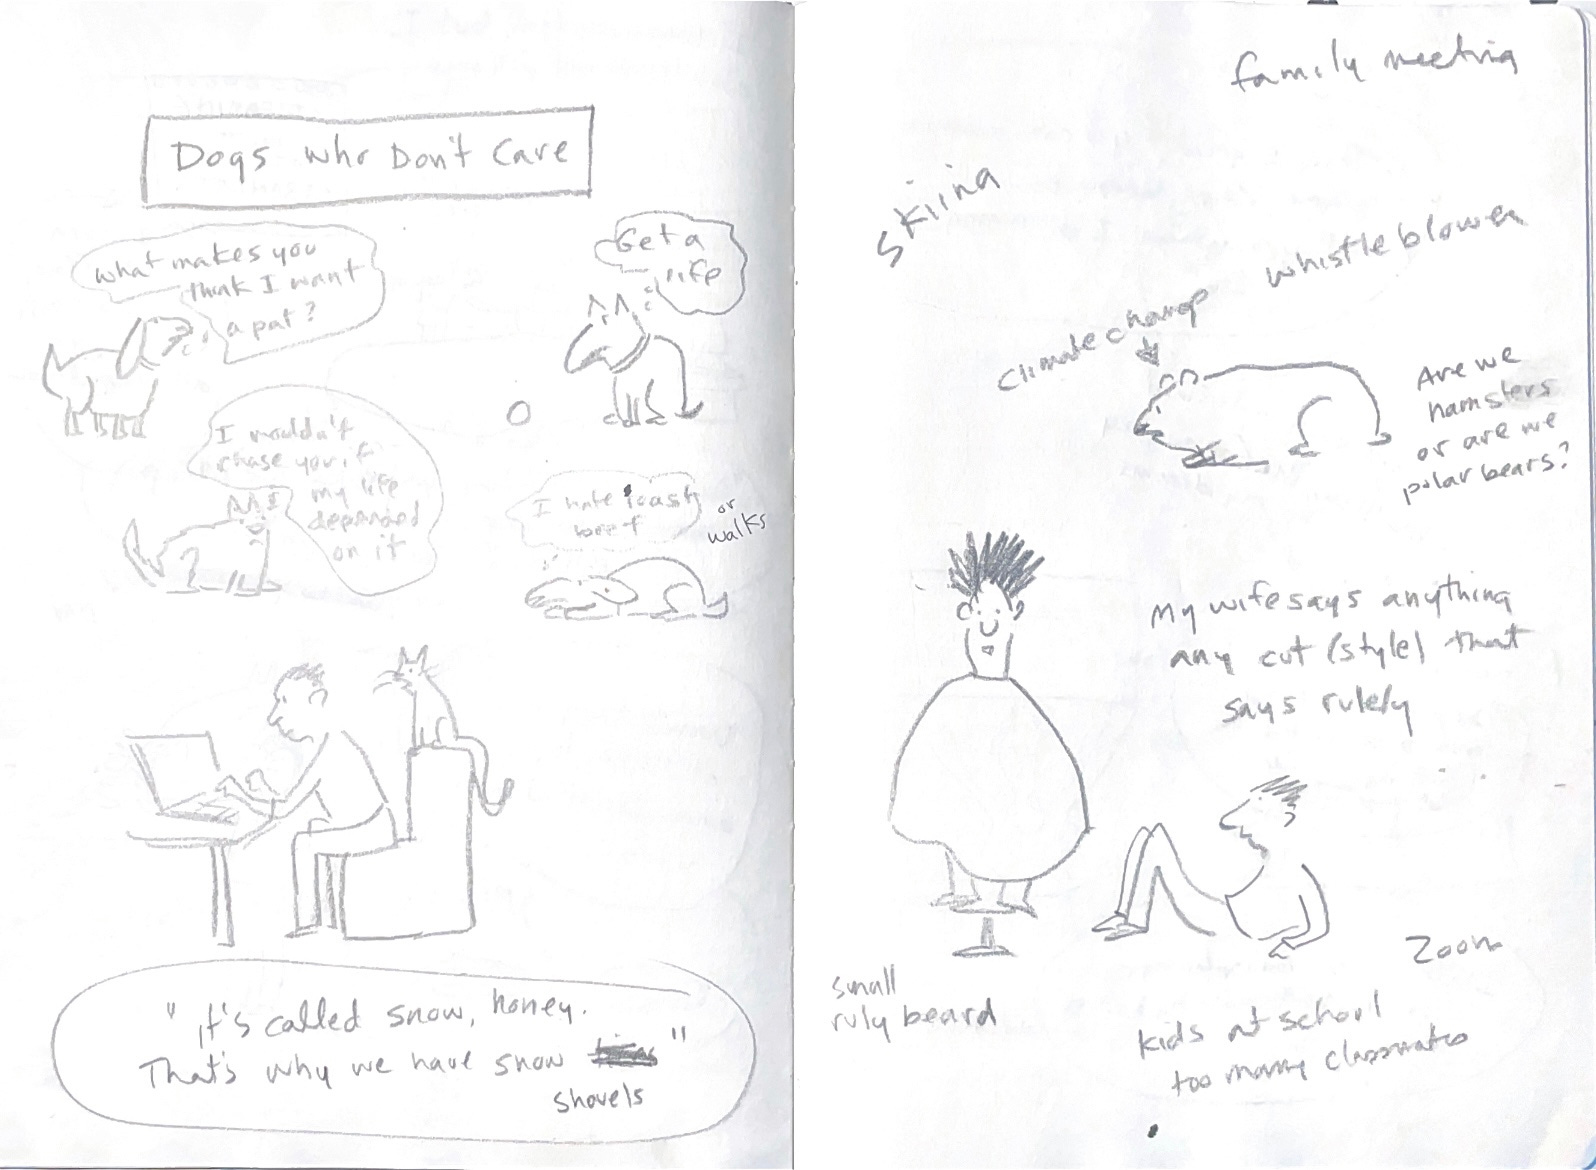 Dogs who Don't Care
What makes you
think I want
a pat?
Get a
life
I wouldn't
chase you if
my life
depended
on it
I hate roast
beef
or
walks
"It's called snow, honey.
That's why we have snow "
shovels
family meeting
skiing
whistleblower
climate change
Are we
hamsters
or are we
polar bears?
My wife says anything
any cut (style) that
says rulely
small
ruly beard
Zoom
kids at school
too many classmates